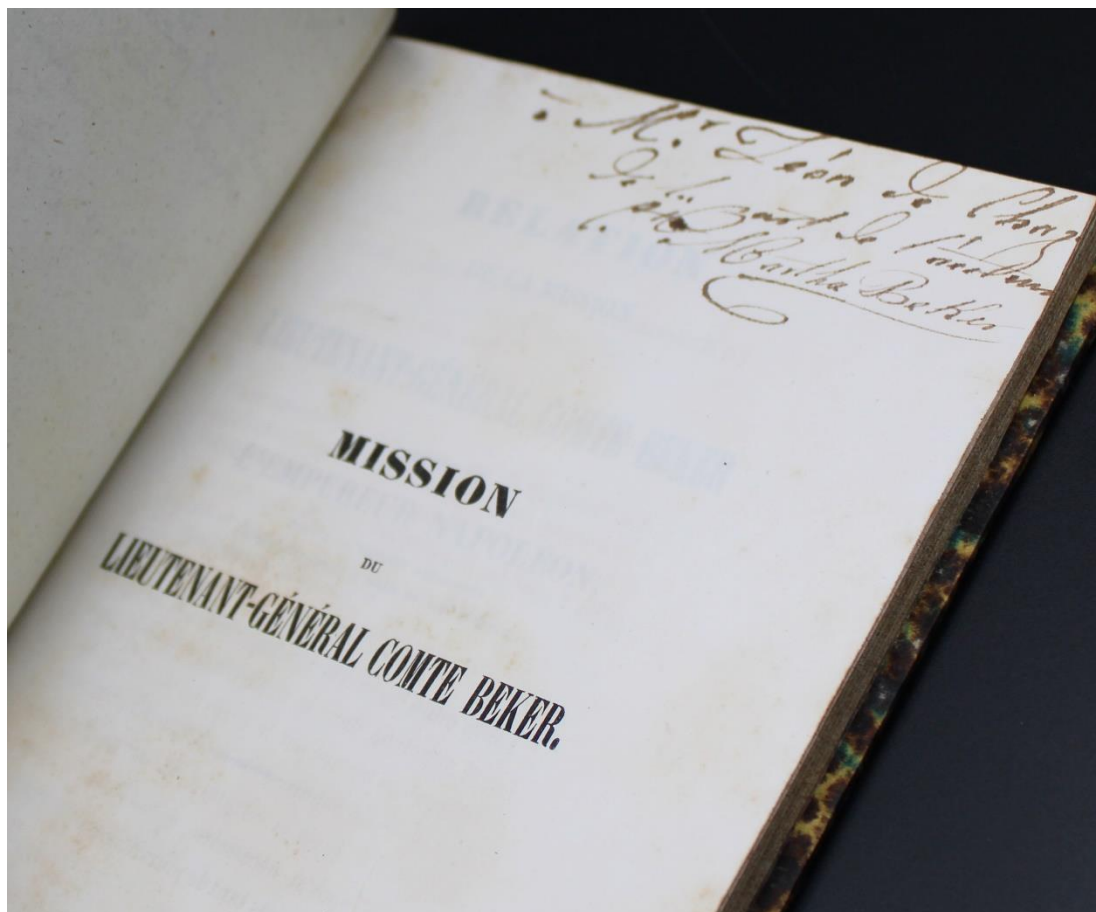 à Mr Léon de Chaz
de la part de l'auteur
Martha Beker
MISSION
DU
LIEUTENANT-GÉNÉRAL COMTE BEKER.